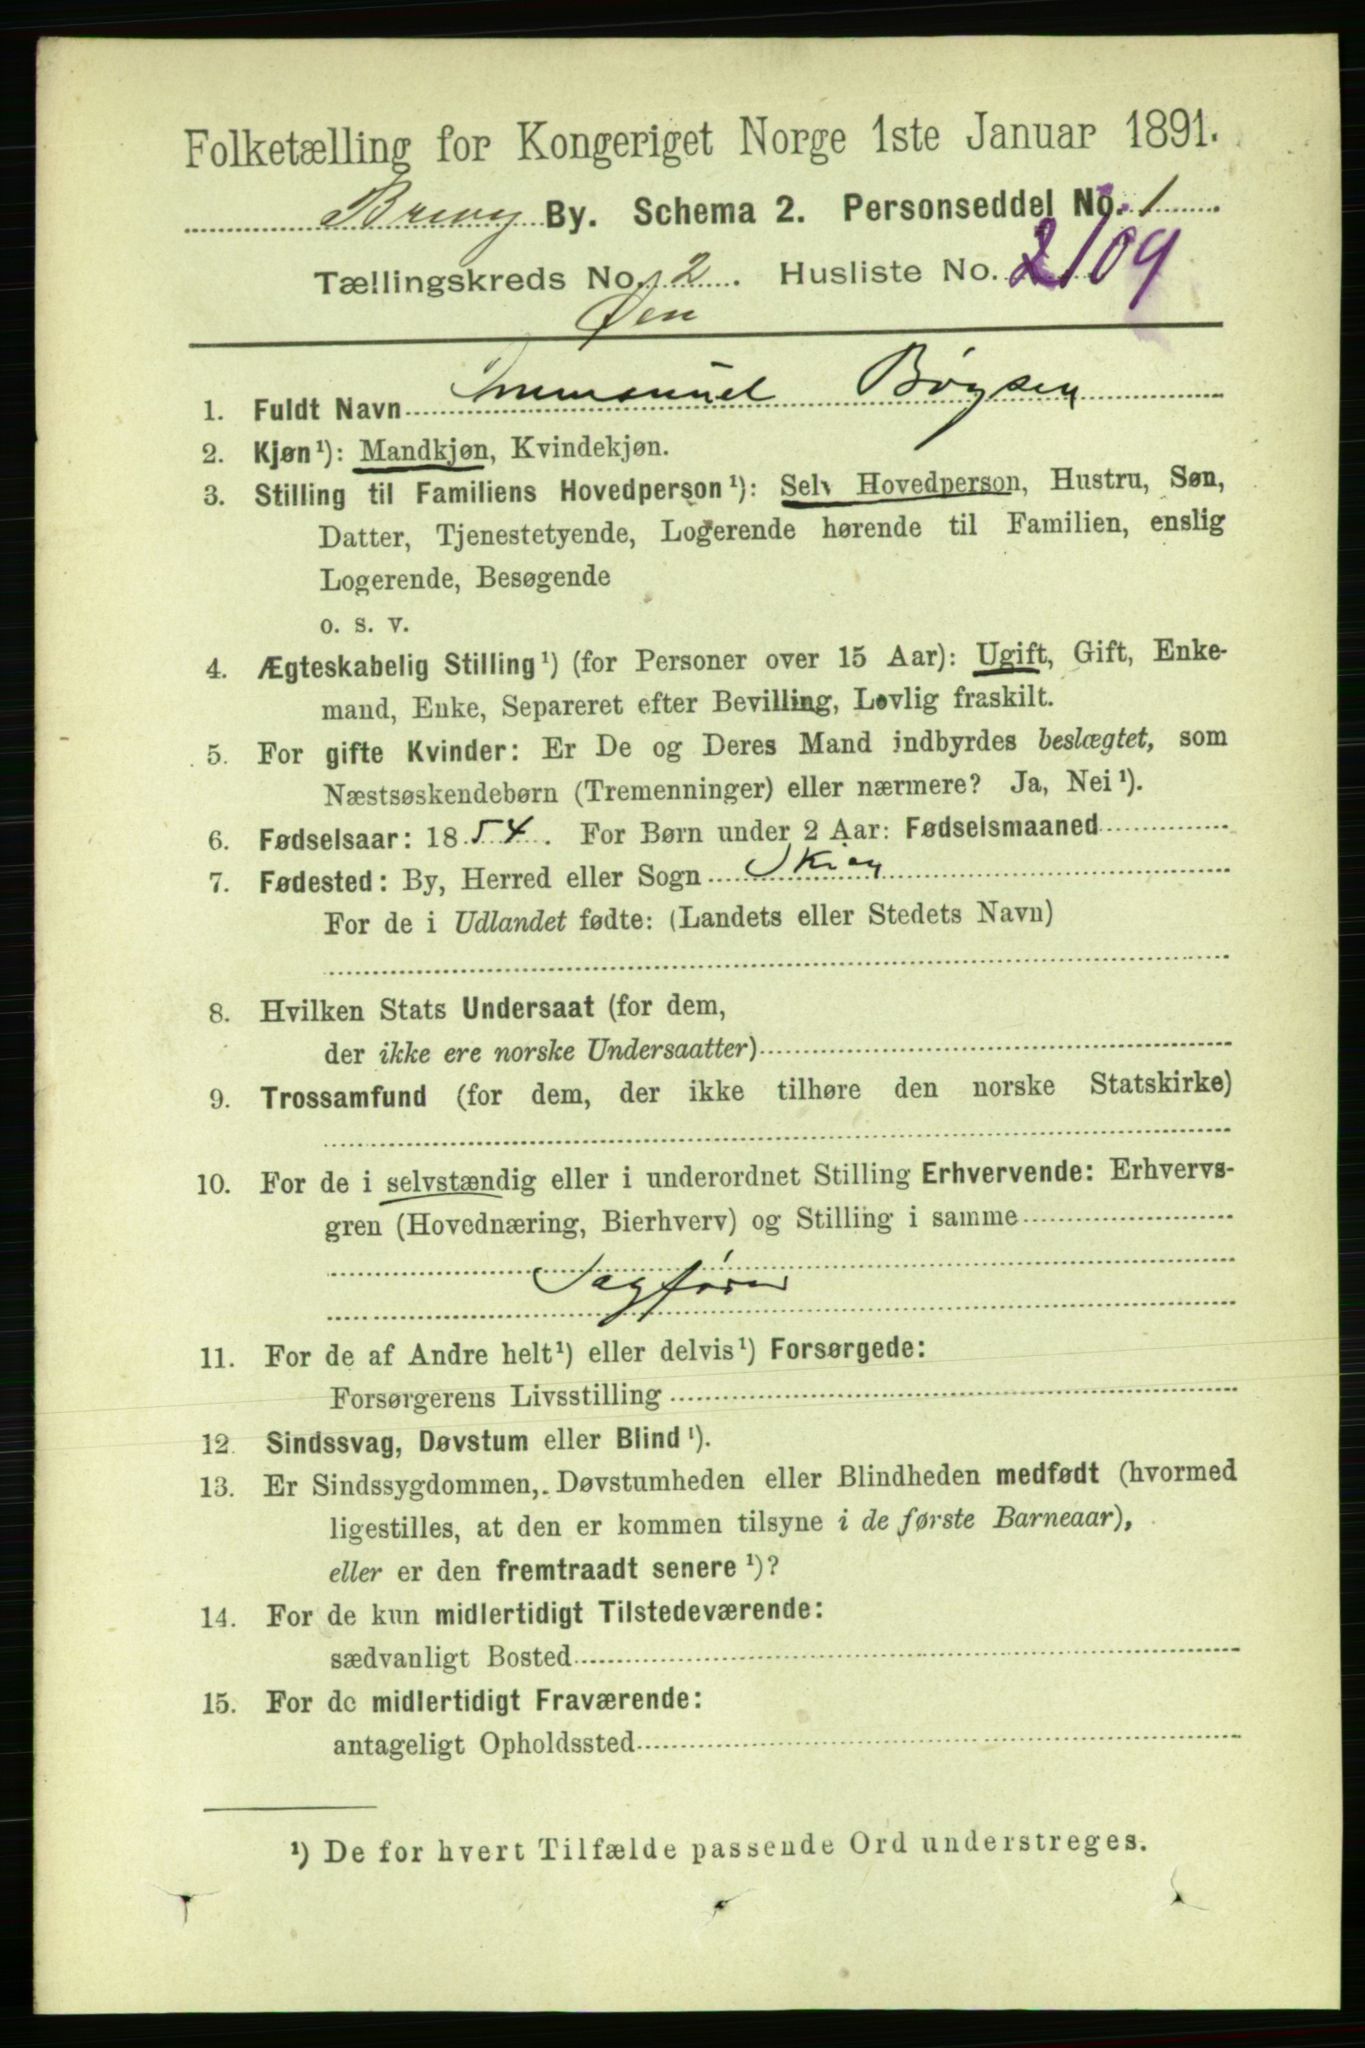 Folketælling for Kongeriget Norge 1ste Januar 1891.
Brevig By. Schema 2. Personseddel No. 1
Tællingskreds No. 2. Husliste No. 2109
Øen
1. Fuldt Navn Immanuel Bøysen
2. Kjøn¹): Mandkjøn, Kvindekjøn.
3. Stilling til Familiens Hovedperson¹): Selv Hovedperson, Hustru, Søn,
Datter, Tjenestetyende, Logerende hørende til Familien, enslig
Logerende, Besøgende
o. s. v.
4. Ægteskabelig Stilling¹) (for Personer over 15 Aar): Ugift, Gift, Enke-
mand, Enke, Separeret efter Bevilling, Lovlig fraskilt.
5. For gifte Kvinder: Er De og Deres Mand indbyrdes beslægtet, som
Næstsøskendebørn (Tremenninger) eller nærmere? Ja, Nei¹).
6. Fødselsaar: 1854. For Børn under 2 Aar: Fødselsmaaned
7. Fødested: By, Herred eller Sogn Skien
For de i Udlandet fødte: (Landets eller Stedets Navn)
8. Hvilken Stats Undersaat (for dem,
der ikke ere norske Undersaatter)
9. Trossamfund (for dem, der ikke tilhøre den norske Statskirke)
10. For de i selvstændig eller i underordnet Stilling Erhvervende: Erhvervs-
gren (Hovednæring, Bierhverv) og Stilling i samme
Sagfører
11. For de af Andre helt¹) eller delvis¹) Forsørgede:
Forsørgerens Livsstilling
12. Sindssvag, Døvstum eller Blind¹).
13. Er Sindssygdommen, Døvstumheden eller Blindheden medfødt (hvormed
ligestilles, at den er kommen tilsyne i de første Barneaar),
eller er den fremtraadt senere¹)?
14. For de kun midlertidigt Tilstedeværende:
sædvanligt Bosted
15. For de midlertidigt Fraværende:
antageligt Opholdssted
¹) De for hvert Tilfælde passende Ord understreges.